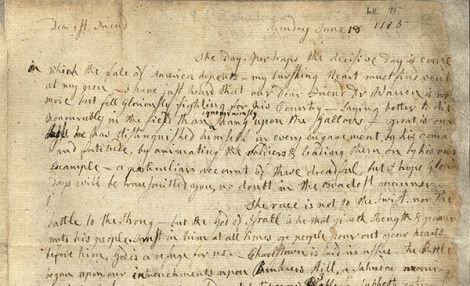 Dearest Friend Sunday June 18 1775
The Day; perhaps the decisive Day is come
on which the fate of America depends - my bursting Heart must find vent
at my pen. I have just heard that our dear Friend Dr Warren is no
more but fell gloriously fighting for his Country - saying better to die
honourably in the field than ignominiously hang upon the Gallows - great is our
Loss he has distinguished himself in every engagement, by his courage
and fortitude, by animating the Soldiers & leading them on by his own
example - a particuliar account of these dreadful, but I hope Glorious
Days will be transmitted you, no doubt in the exactest manner.
The race is not to the swift, nor the
battle to the strong - but the God of Israel is he that giveth strength & power
unto his people. Trust in him at all times ye people pour out your hearts
before him, God is a refuge for us - Charlstown is laid in ashes. The Battle
began upon our intrenchments upon Bunkers Hill, a Saturday morning